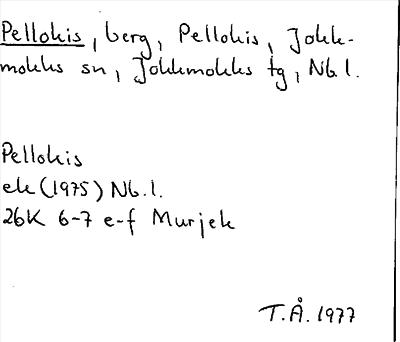 Pellokis, berg, Pellokis, Jokk-
mokks sn, Jokkmokks tg, Nb.l.
Pellokis
ek (1975) Nb.l.
26K 6-7 e-f Murjek
T.Å. 1977